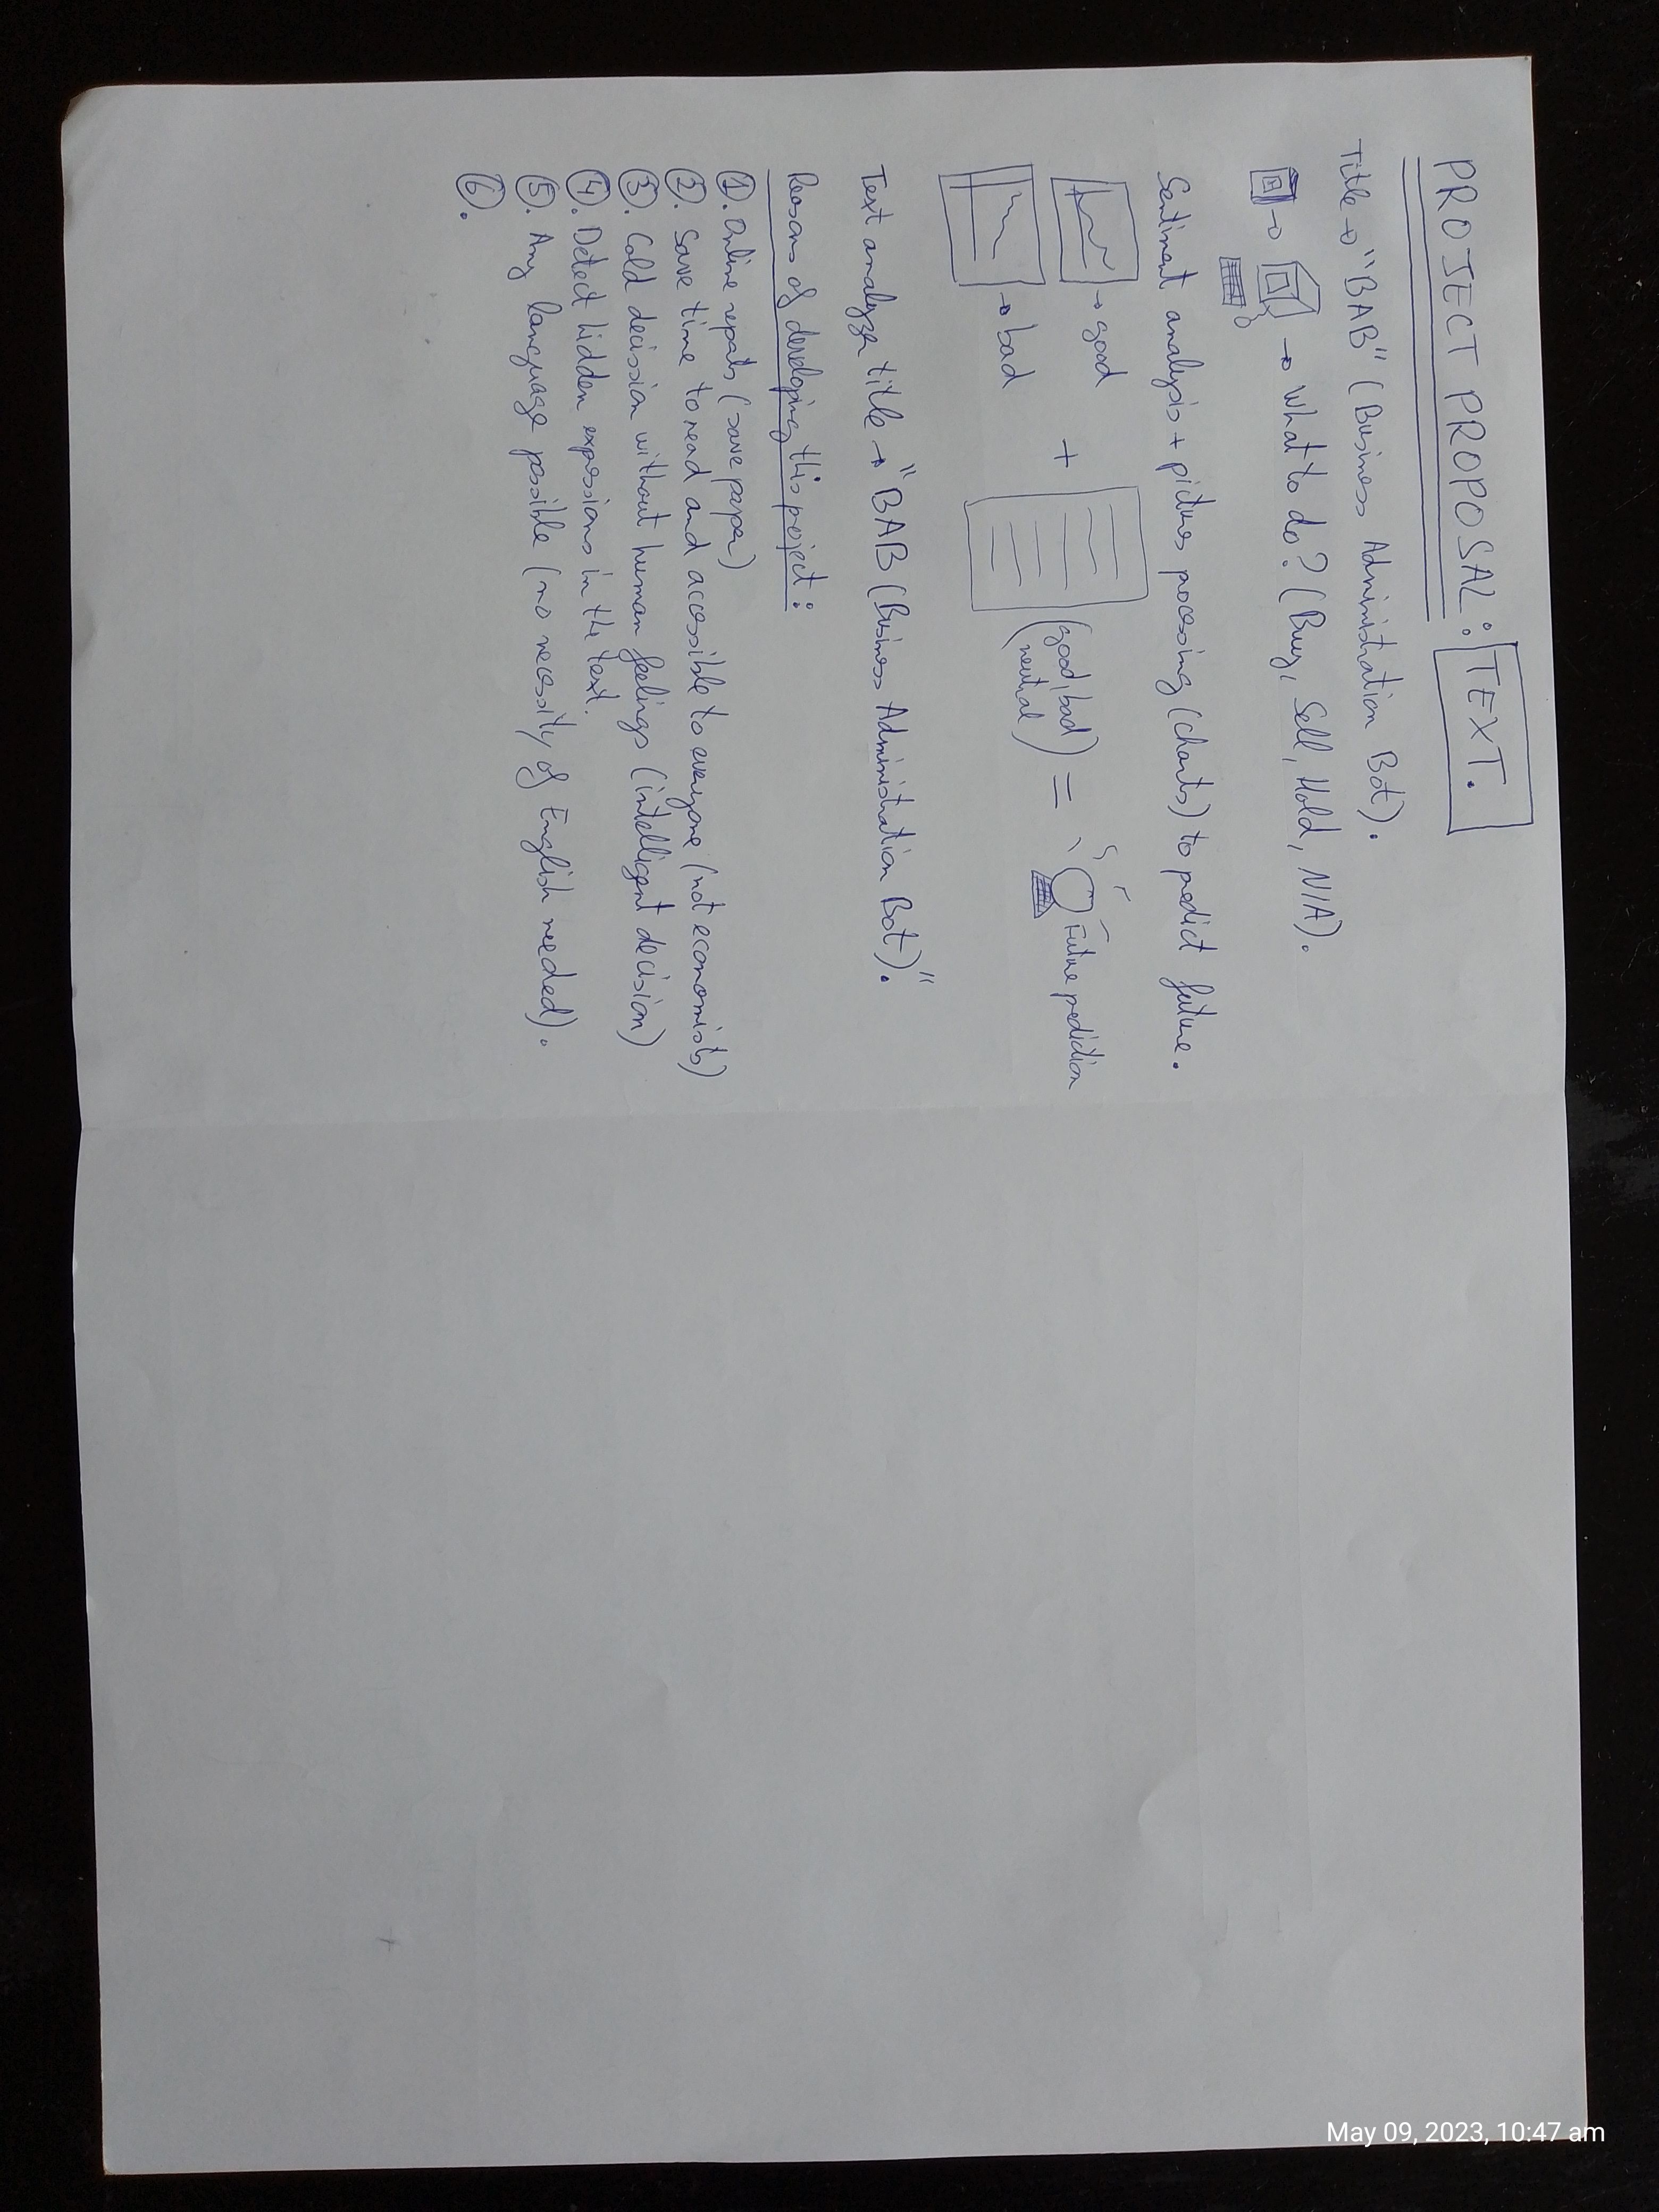 PROJECT PROPOSAL: TEXT.
Title → "BAB" (Business Administration Bot).
→ → What to do? (Buy, Sell, Hold, N/A).
Sentiment analysis + pictures processing (charts) to predict future.
→ good
→ bad
+
(good, bad, neutral)
=
Future prediction
Text analyze title → "BAB (Business Administration Bot)."
Reasons of developing this project:
1. Online repots (save paper)
2. Save time to read and accessible to everyone (not economists)
3. Cold decission without human feelings (intelligent decision)
4. Detect hidden expressions in the text.
5. Any language possible (no necessity of English needed).
6.
May 09, 2023, 10:47 am